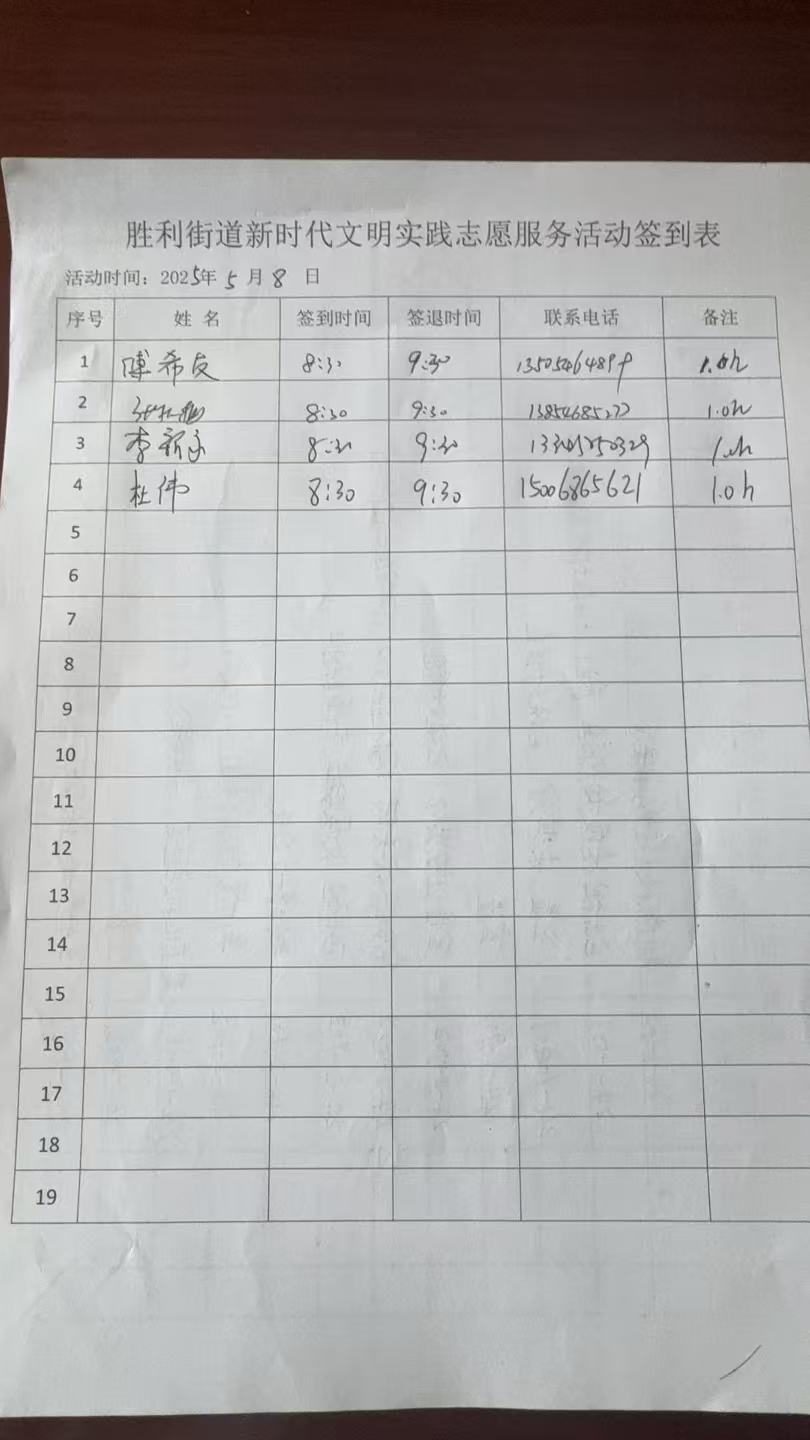 胜利街道新时代文明实践志愿服务活动签到表
活动时间：2025年 5 月 8 日
序号 姓 名 签到时间 签退时间 联系电话 备注
1 陈希友 8:30 9:30 1.0h
2 8:30 9:30 1.0h
3 李 8:30 9:30 1.0h
4 杜伟 8:30 9:30 15006865621 1.0h
5
6
7
8
9
10
11
12
13
14
15
16
17
18
19